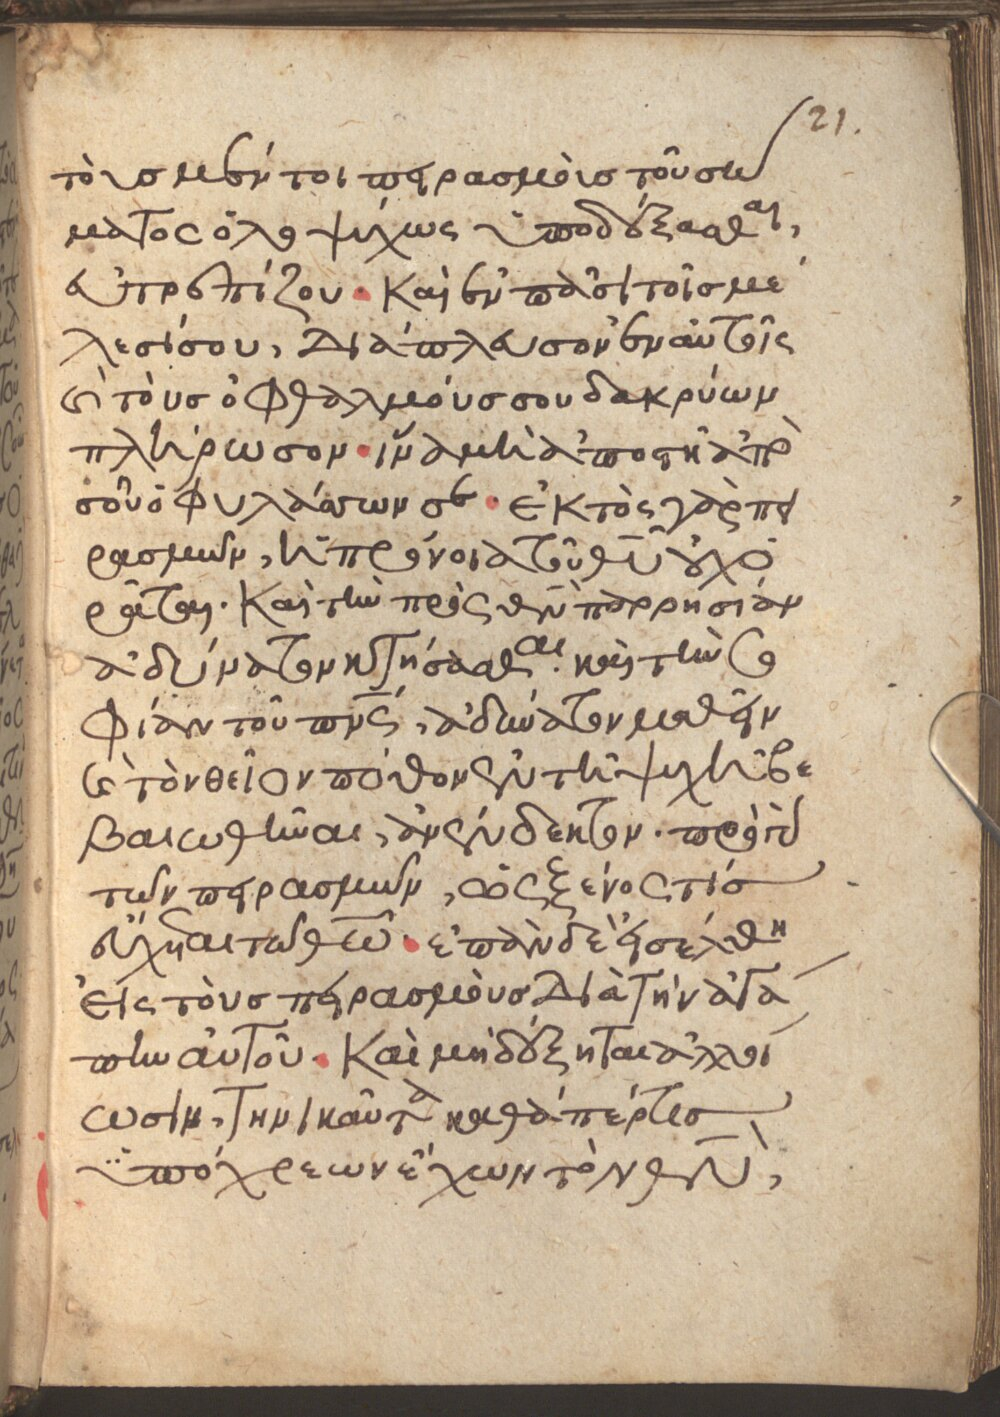 21.
τοὺς μέντοι πειρασμοὺς τοῦ σώ
ματος ὁλοψύχως ὑποδέξασθαι,
εὐτρεπίζου. Καὶ ἐν πᾶσι τοῖς μέ
λεσί σου, διάπλευσον ἐν αὐτοῖς
καὶ τοὺς ὀφθαλμούς σου δακρύων
πλήρωσον. ἵνα μὴ ἀποστῇ ἀπὸ
σοῦ ὁ φυλάσσων σε. ἐκτὸς γὰρ πει
ρασμῶν, ἡ πρόνοια τοῦ θυ οὐχ ὁ
ρᾶται. Καὶ τὴν πρὸς θν παρρησίαν
ἀδύνατον κτήσασθαι. καὶ τὴν σο
φίαν τοῦ πνς, ἀδύνατον μαθεῖν
καὶ τὸν θεῖον πόθον ἐν τῇ ψυχῇ βε
βαιωθῆναι, ἀνένδεκτον. πρὸ
τῶν πειρασμῶν, ὡς ξένος τίς
εὔχεται τῷ θω. ἐπὰν δὲ εἰσέλθη
εἰς τοὺς πειρασμοὺς διὰ τὴν ἀγά
πην αὐτοῦ. Καὶ μὴ δέξηται ἀλλοί
ωσιν, τηνικαῦτα καθάπέρ τις
ὑπόχρεων ἔχων τὸν θν,